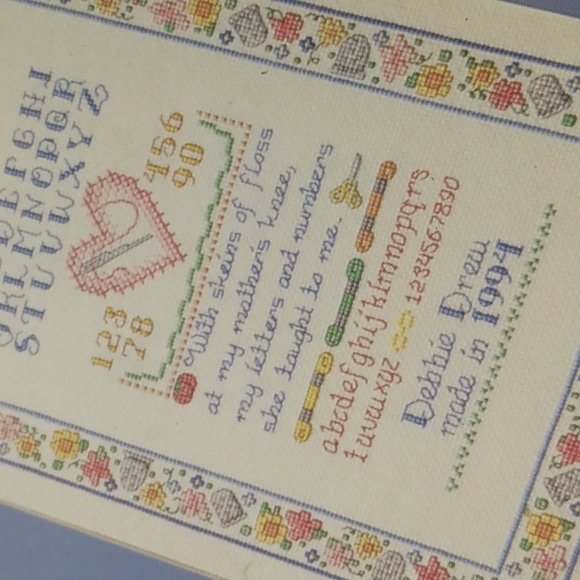 E F G H I
J K L M N O P Q R
S T U V W X Y Z
123 456
78 90
With skeins of floss
at my mother's knee,
my letters and numbers
she taught to me.
abcdefghijklmnopqrs
tuvwxyz 1234567890
Debbie Drew
made in 1994